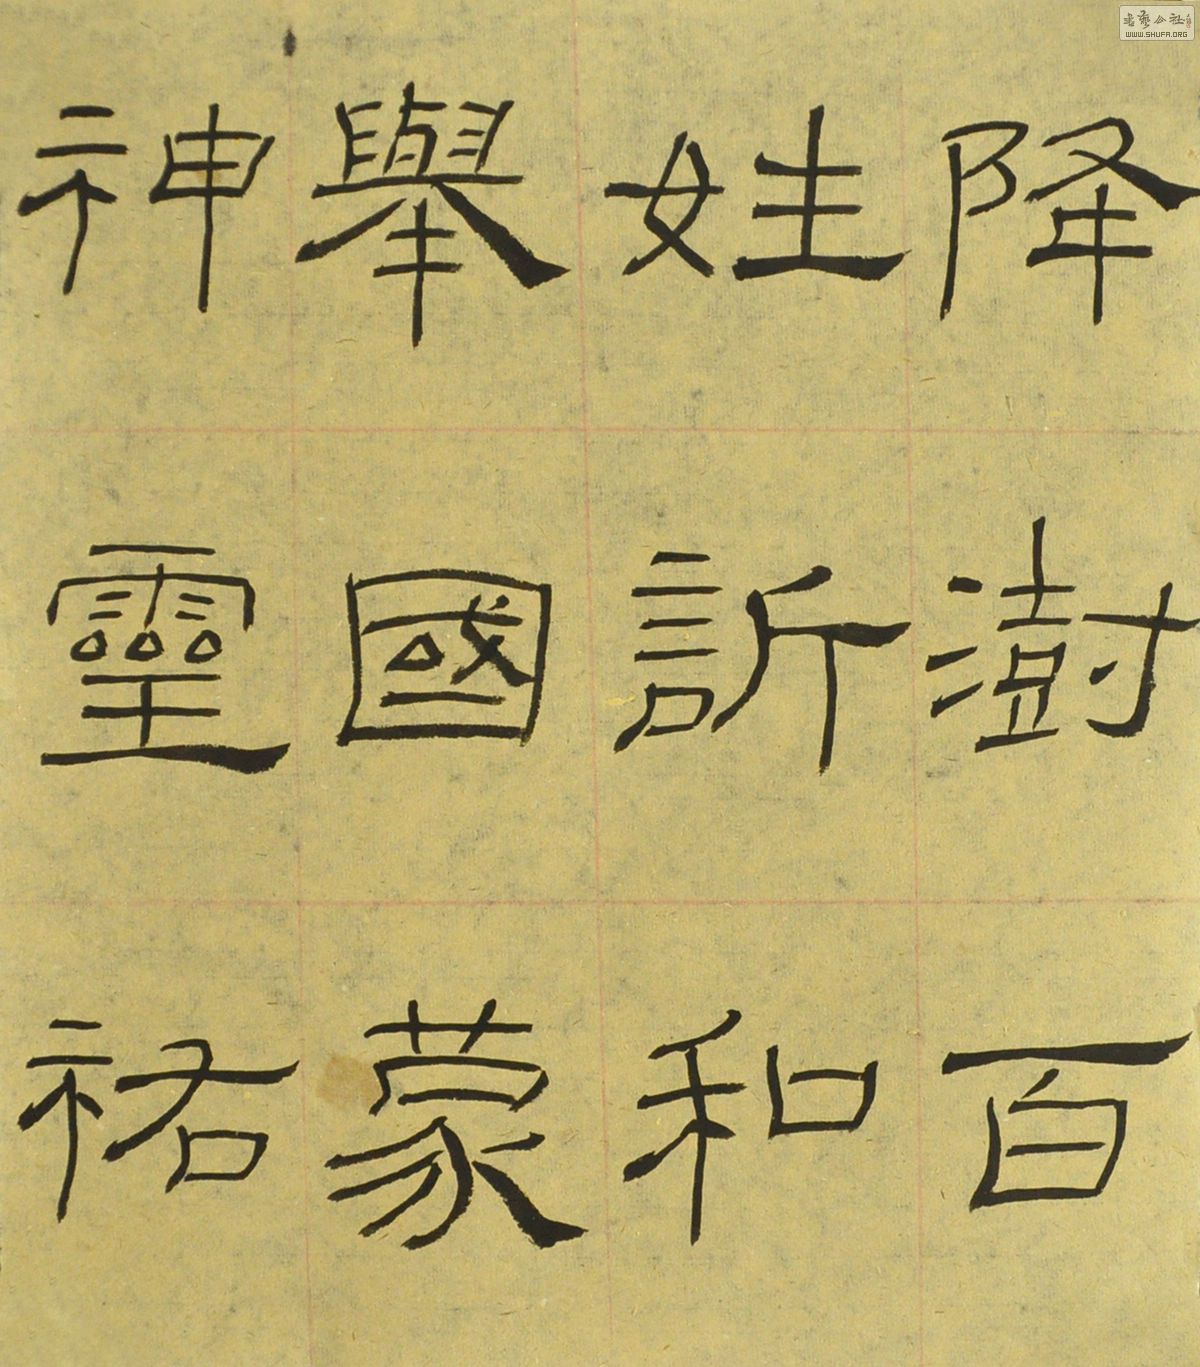 降澍百
姓訢和
舉國蒙
神靈祐
書藝公社
WWW.SHUFA.ORG